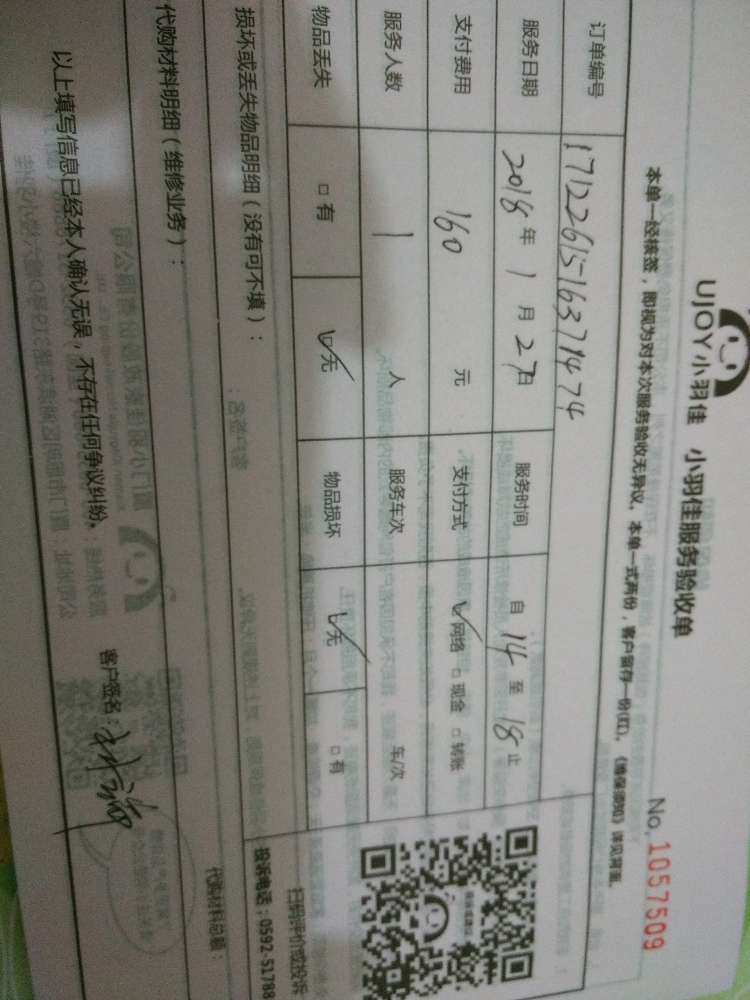 UJOY小羽佳 小羽佳服务验收单
No. 1057509
本单一经核签，即视为对本次服务验收无异议。本单一式两份，客户留存一份(红)。《维保须知》详见背面。
订单编号 17122615-16371474
服务日期 2018 年 1 月 27日 服务时间 自 14 至 18 止
支付费用 160 元 支付方式 ☑网络 □现金 □转账
服务人数 1 人 服务车次 车/次
物品丢失 □有 ☑无 物品损坏 ☑无 □有
损坏或丢失物品明细（没有可不填）：
扫码评价或投诉
投诉电话：0592-51788
代购材料明细（维修业务）： 代购材料总额：
以上填写信息已经本人确认无误，不存在任何争议纠纷。 客户签名：